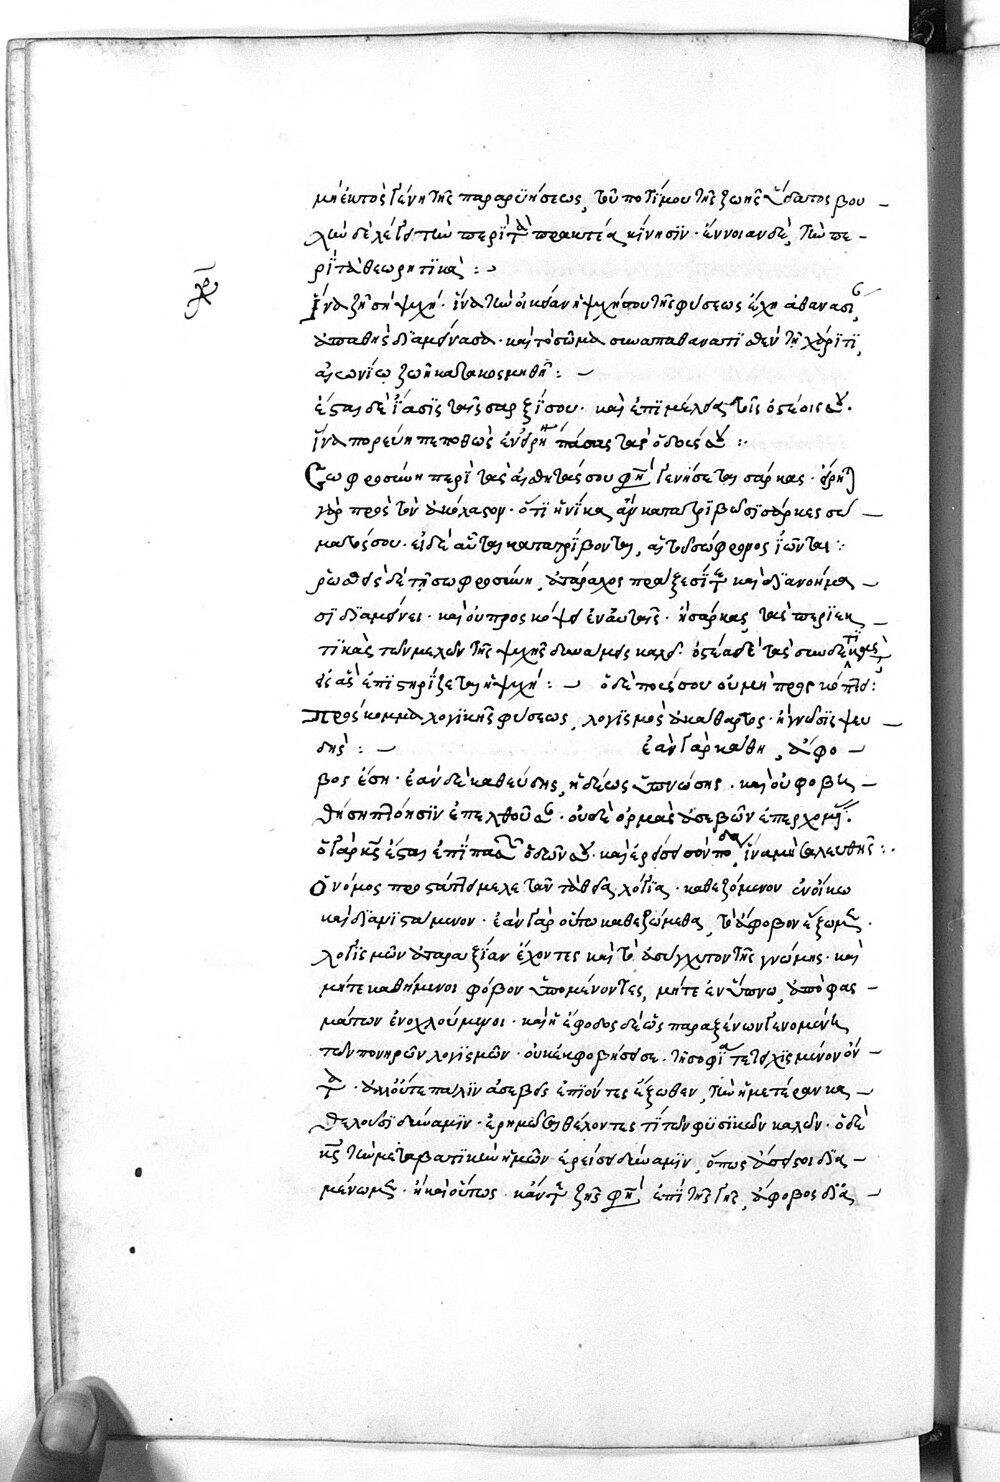 μὴ ἐκτὸς γένη τῆς παραρυήσεως, τοῦ ποτίμου τῆς ζωῆς ὕδατος βου
λὴν δὲ λέγει τὴν περὶ τὰ πρακτέα κίνησιν · ἔννοιαν δὲ, τὴν πε
ρὶ τὰ θεωρητικά :
ἵνα ζήσῃ ἡ ψυχή · ἵνα τὴν οἰκείαν ἡ ψυχή σου τῆς φύσεως ἔχῃ ἀθανασί
ἀπαθὴς διαμείνασα · καὶ τὸ σῶμα συναπαθανατισθὲν τῇ χάριτι,
αἰωνίῳ ζωῇ κατακοσμηθῇ :
ἔσται δὲ ἴασις ταῖς σαρξί σου · καὶ ἐπιμέλεια τοῖς ὀστέοις σου ·
ἵνα πορεύῃ πεποιθὼς ἐν εἰρήνῃ πάσας τὰς ὁδούς σου :
Σωφροσύνη περὶ τὰς αἰσθητάς σου φησὶ γενήσεται σάρκας · εἴρηται
γὰρ πρὸς τὸν ἀκόλαστον · ὅτι ἡνίκα ἂν κατατριβῶσι σάρκες σώ
ματός σου · εἰ δὲ αὗται κατατρίβονται, αἱ τοῦ σώφρονος ἰῶνται :
ὁ πεποιθὼς δὲ τῇ σωφροσύνῃ, ἀτάραχος πράξεσί τε καὶ διανοήμα
σι διαμένει · καὶ οὐ προσκόψει ἐν αὐταῖς · ἢ σάρκας τὰς περιεκ
τικὰς τῶν μελῶν τῆς ψυχῆς δυνάμεις καλεῖ · ὀστέα δὲ τὰς συνδετικάς τε
εἰς ἃς ἐπιστηρίζεται ἡ ψυχή : ὁ δὲ πούς σου οὐ μὴ προσκόπτει :
Πρόσκομμα λογικῆς φύσεως, λογισμὸς ἀκάθαρτος · ἢ γνῶσις ψευ
δής : ἐὰν γὰρ κάθῃ, ἄφο
βος ἔσῃ · ἐὰν δὲ καθεύδῃς, ἡδέως ὑπνώσῃς · καὶ οὐ φοβη
θήσῃ πτόησιν ἐπελθοῦσαν · οὐδὲ ὁρμὰς ἀσεβῶν ἐπερχομένας ·
ὁ γὰρ κύριος ἔσται ἐπὶ πασῶν ὁδῶν σου · καὶ ἐρείσει σὸν πόδα, ἵνα μὴ σαλευθῇς :
Ὁ νόμος προστάττει μελετᾶν τὰ θεῖα λόγια · καθεζόμενον ἐν οἴκῳ
καὶ διανιστάμενον · ἐὰν γὰρ οὕτω καθεζώμεθα, τὸ ἄφοβον ἕξωμεν ·
λογισμῶν ἀταραξίαν ἔχοντες καὶ τὸ ἀσύγχυτον τῆς γνώμης · καὶ
μήτε καθήμενοι φόβον ὑπομένοντες, μήτε ἐν ὕπνῳ, ὑπὸ φασ
μάτων ἐνοχλούμενοι · καὶ ἡ ἔφοδος δέ ὡς παρὰ ξένων γενομένη
τῶν πονηρῶν λογισμῶν · οὐκ ἐκφοβήσει σε · τῇ σοφίᾳ τετειχισμένον ὄν
τα · ἀλλ' οὔτε πάλιν ἀσεβεῖς ἐπιόντες ἔξωθεν, τὴν ἡμετέραν κα
θελοῦσι δύναμιν · ἐρημῶσαι θέλοντες τι τῶν φυσικῶν καλῶν · ὁ δὲ
κύριος τὴν μεταβατικὴν ἡμῶν ἐρείσει δύναμιν, ὅπως ἄσειστοι δια
μένωμεν · ἢ καὶ οὕτως · κἂν ζῇς φησὶ ἐπὶ τῆς γῆς, ἄφοβος δια